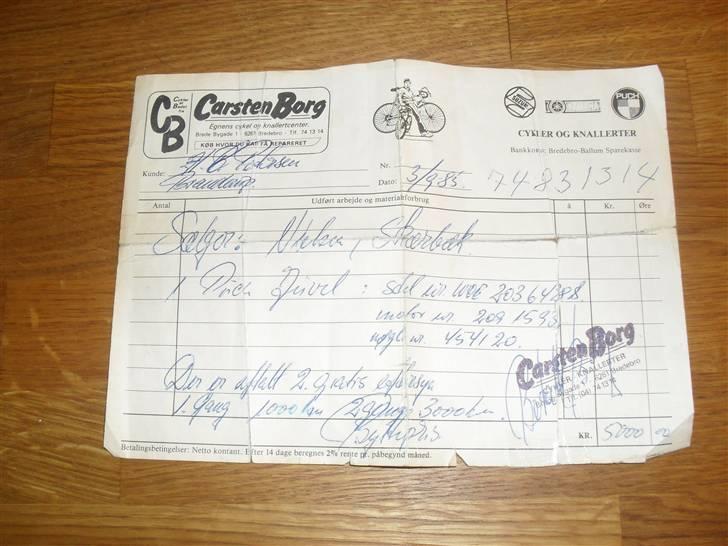 CB Cykler og Bedst fra
Carsten Borg
Egnens cykel og knallertcenter.
Brede Bygade 1 · 6261 Bredebro · Tlf. 74 13 14
KØB HVOR DU KAN FÅ REPARERET
PUCH
CYKLER OG KNALLERTER
Bankkonto: Bredebro-Ballum Sparekasse
Kunde:
Nr.
Dato: 3/9 85.
74831314
Antal Udført arbejde og materialforbrug à Kr. Øre
Sælger: Nielsen, Skærbæk
1 Puch : stel nr. 2036428
motor nr. 209 1593
nøgle nr. 454120.
Carsten Borg
CYKLER, KNALLERTER
Bygade 1 · 6261 Bredebro
TLF. (04) 74 13 14
Der er aftalt 2. gratis eftersyn
1. gang 1000 km 2 gang 3000 km.
KR. 5000 00
Betalingsbetingelser: Netto kontant. Efter 14 dage beregnes 2% rente pr. påbegynd måned.